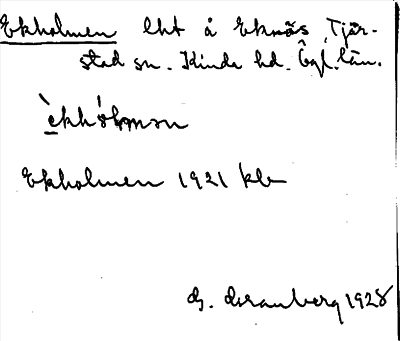 Ekholmen lht å Eknäs, Tjär-
stad sn. Kinda hd. Ögl. län.
èkhólmən
Ekholmen 1921 kb
G. Granberg 1928